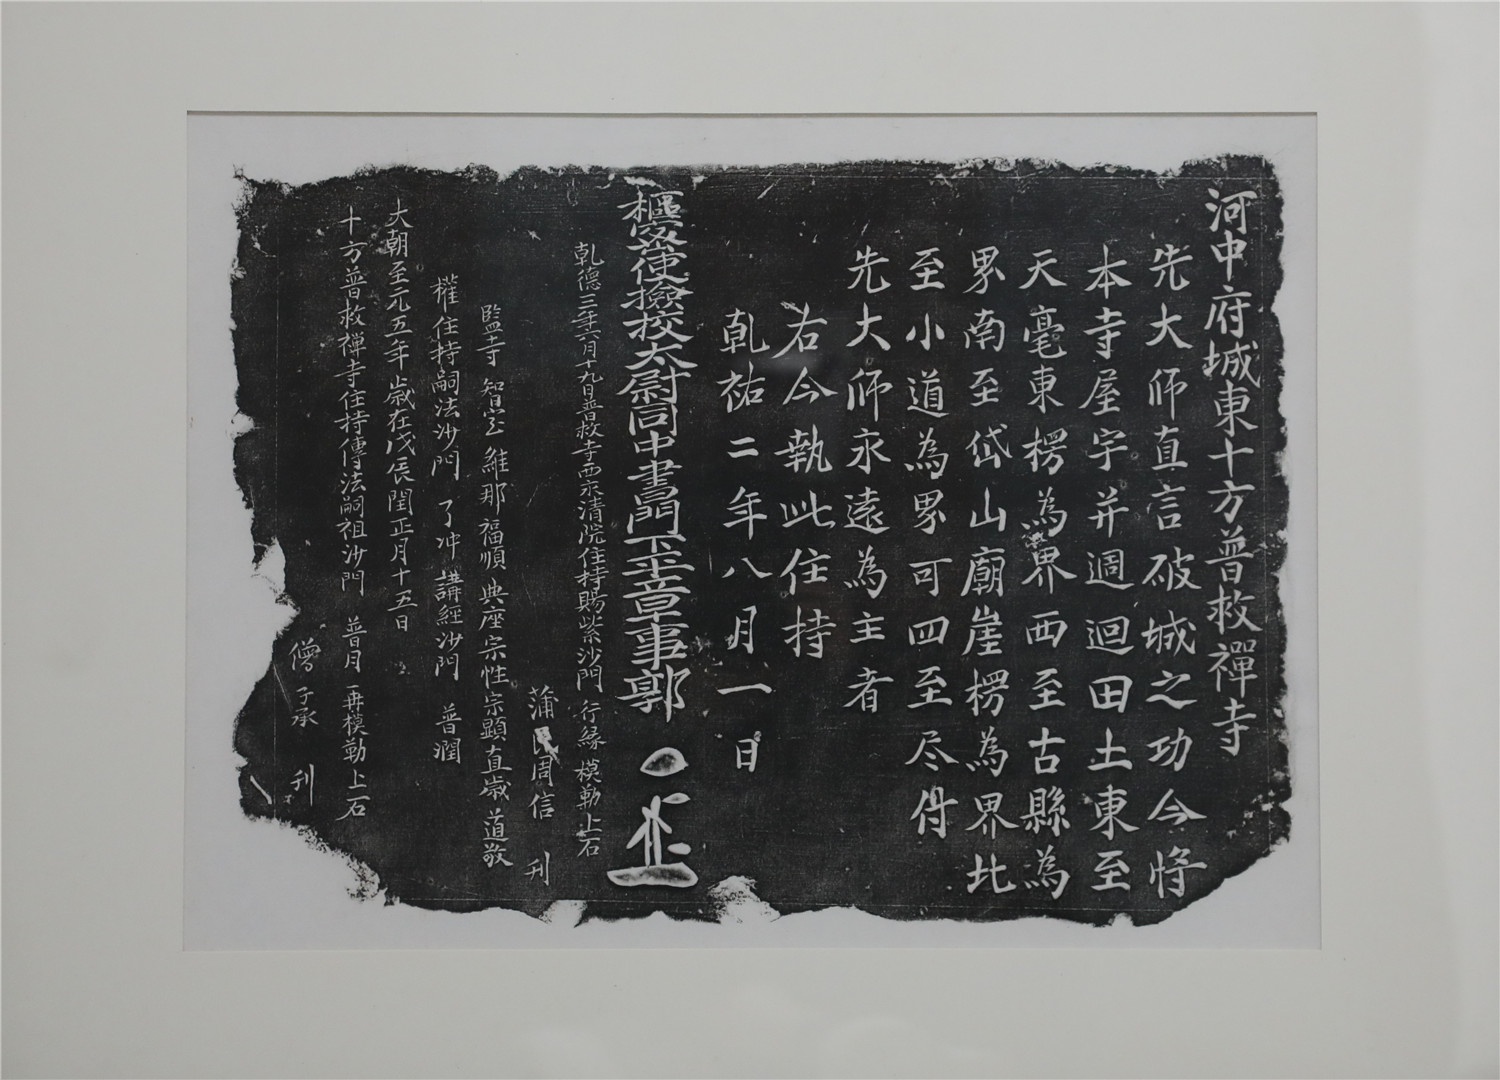 河中府城東十方普救禪寺
先大師直言破城之功今将
本寺屋宇并週迴田土東至
天毫東楞為界西至古縣為
界南至岱山廟崖楞為界北
至小道為界可四至尽付
先大師永遠為主者
右今執此住持
乹祐二年八月一日
樞密使撿挍太尉同中書門下平章事郭
乹德三年六月十九日普救寺西永清院住持賜紫沙門行緣模勒上石
蒲 周信 刊
監寺 智 維那 福順 典座 宗性 宗顯 直歲 道敬
權住持嗣法沙門 了冲 講經沙門 普潤
大朝至元五年歲在戊辰閏正月十五日
十方普救禪寺住持傳法嗣祖沙門 普月 再模勒上石
僧 子承 刊